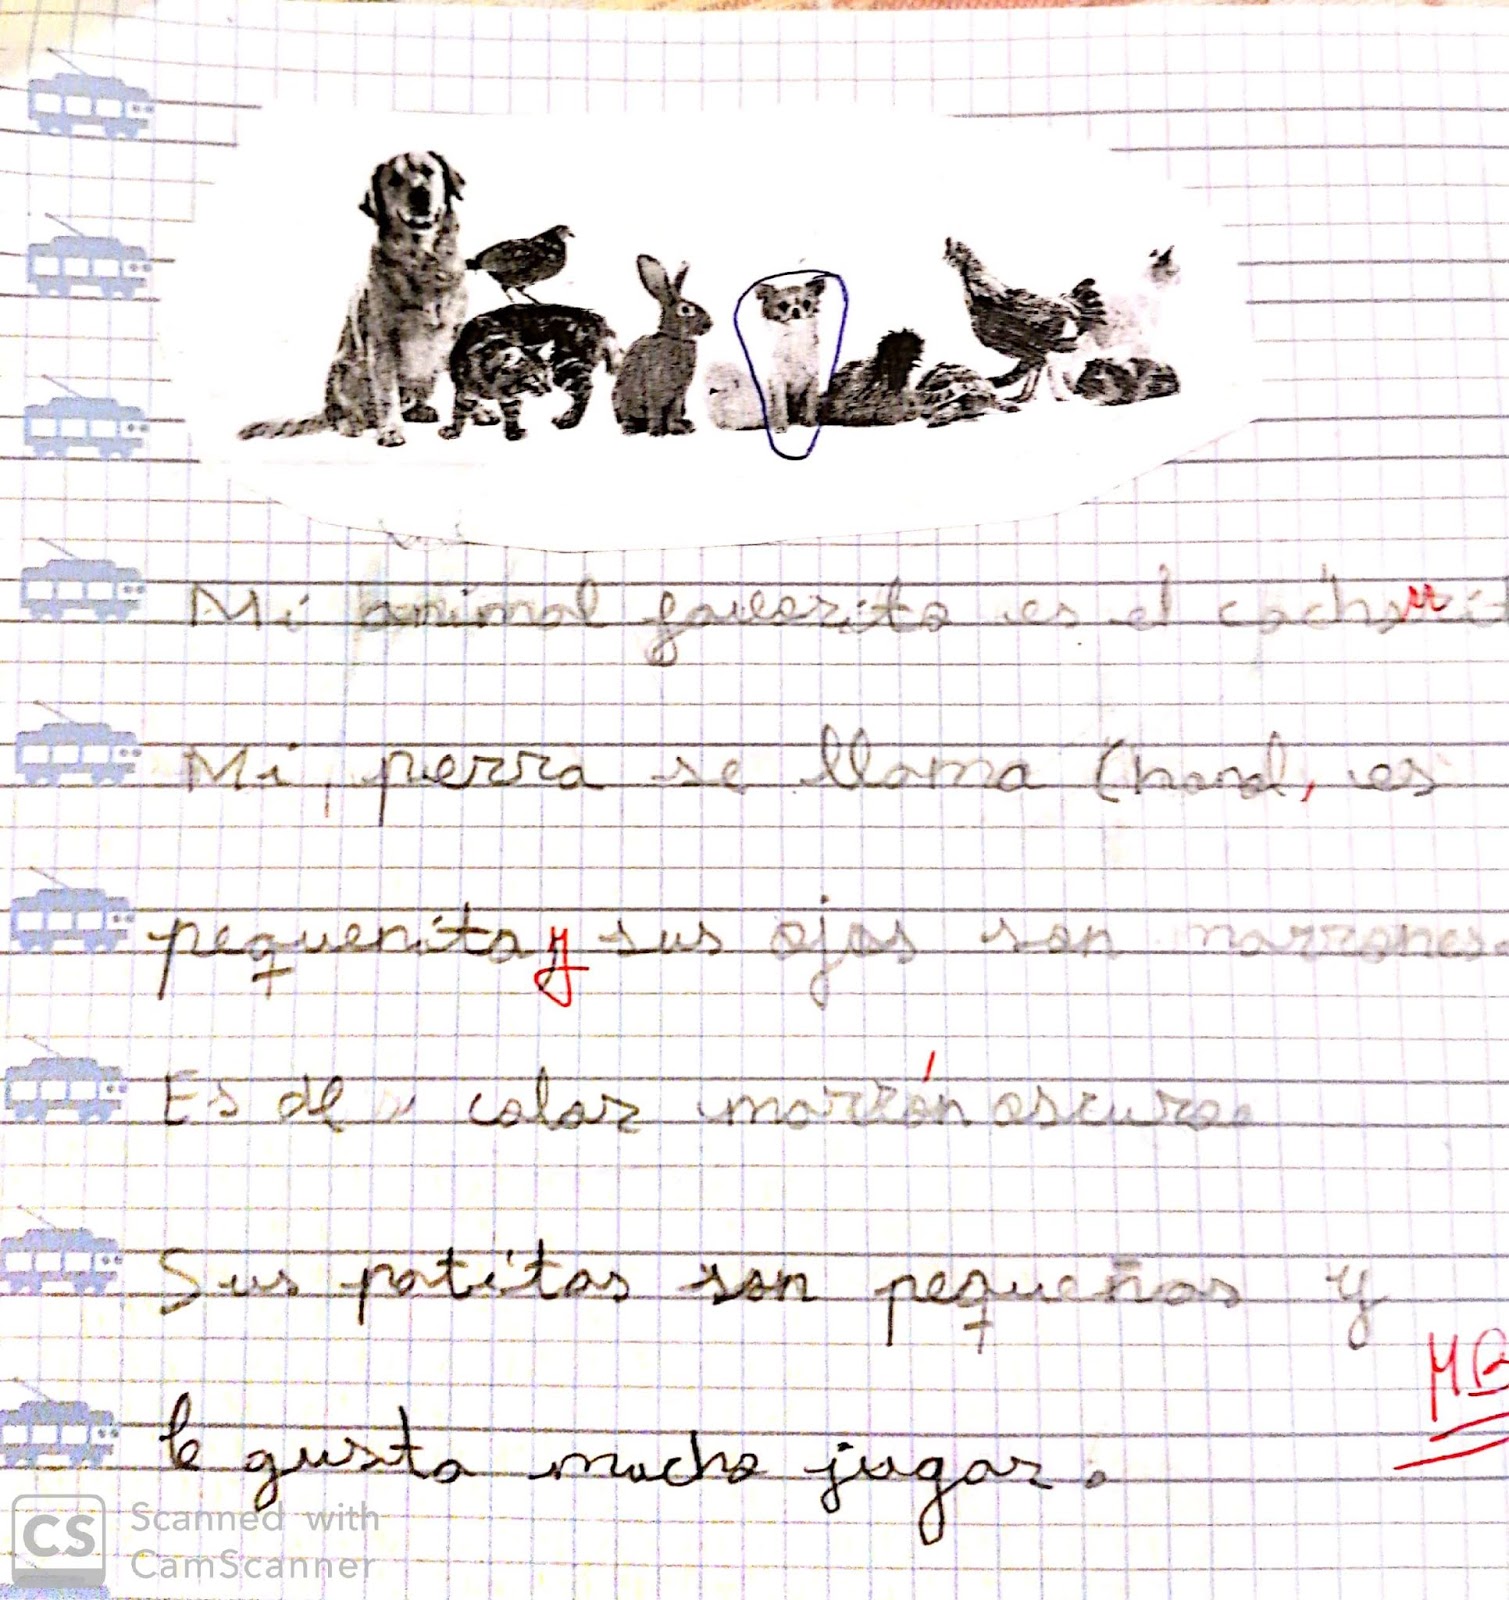 Mi animal favorito es el cachorrit
Mi perra se llama Chanel, es
pequenita y sus ojos son marrones.
Es de color marrón oscuro.
Sus patitas son pequeñas y
MB
le gusta mucho jugar.
CS Scanned with
CamScanner